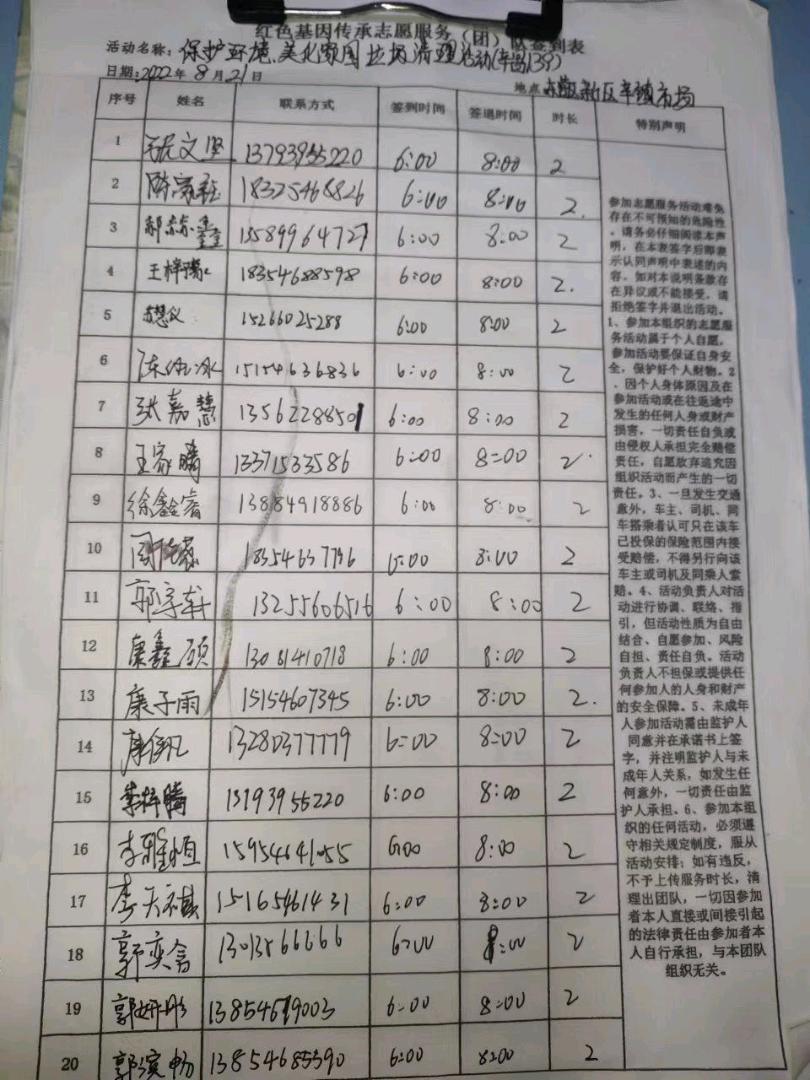 红色基因传承志愿服务(团)队签到表
活动名称:保护环境、美化家园垃圾清理活动(辛镇139)
日期:2022年8月21日 地点 新区辛镇市场
序号 姓名 联系方式 签到时间 签退时间 时长 特别声明
1 文坚 13793955220 6:00 8:00 2
2 18325468826 6:00 8:00 2.
3 郝 鑫 15899964727 6:00 8:00 2
4 王梓 18354688598 6:00 8:00 2.
5 慧仪 15266025288 6:00 8:00 2
6 冰 15154636836 6:00 8:00 2
7 张嘉慧 13562288501 6:00 8:00 2
8 王家腾 13371533586 6:00 8:00 2
9 徐鑫睿 13884918886 6:00 8:00 2
10 18354637796 6:00 8:00 2
11 郭宇轩 13255606516 6:00 8:00 2
12 康鑫硕 13081410718 6:00 8:00 2
13 康子雨 15154607345 6:00 8:00 2.
14 13280377779 6:00 8:00 2
15 李梓腾 13793955220 6:00 8:00 2
16 李雅恒 15954641055 6:00 8:00 2
17 李天祺 15165461431 6:00 8:00 2
18 郭奕含 6:00 8:00 2
19 郭妍彤 13854619003 6:00 8:00 2
20 郭滨畅 13854685390 6:00 8:00 2
参加志愿服务活动难免
存在不可预知的危险性
,请务必仔细阅读本声
明,在本表签字后即表
示认同声明中表述的内
容。如对本说明条款存
在异议或不能接受,请
拒绝签字并退出活动。
1、参加本组织的志愿服
务活动属于个人自愿,
参加活动要保证自身安
全,保护好个人财物。2
、因个人身体原因及在
参加活动或在往返途中
发生的任何人身或财产
损害,一切责任自负或
由侵权人承担完全赔偿
责任,自愿放弃追究因
组织活动而产生的一切
责任。3、一旦发生交通
意外,车主、司机、同
车搭乘者认可只在该车
已投保的保险范围内接
受赔偿,不得另行向该
车主或司机及同乘人索
赔。4、活动负责人对活
动进行协调、联络、指
引,但活动性质为自由
结合、自愿参加、风险
自担、责任自负。活动
负责人不担保或提供任
何参加人的人身和财产
的安全保障。5、未成年
人参加活动需由监护人
同意并在承诺书上签
字,并注明监护人与未
成年人关系,如发生任
何意外,一切责任由监
护人承担。6、参加本组
织的任何活动,必须遵
守相关规定制度,服从
活动安排;如有违反,
不予上传服务时长,清
理出团队,一切因参加
者本人直接或间接引起
的法律责任由参加者本
人自行承担,与本团队
组织无关。